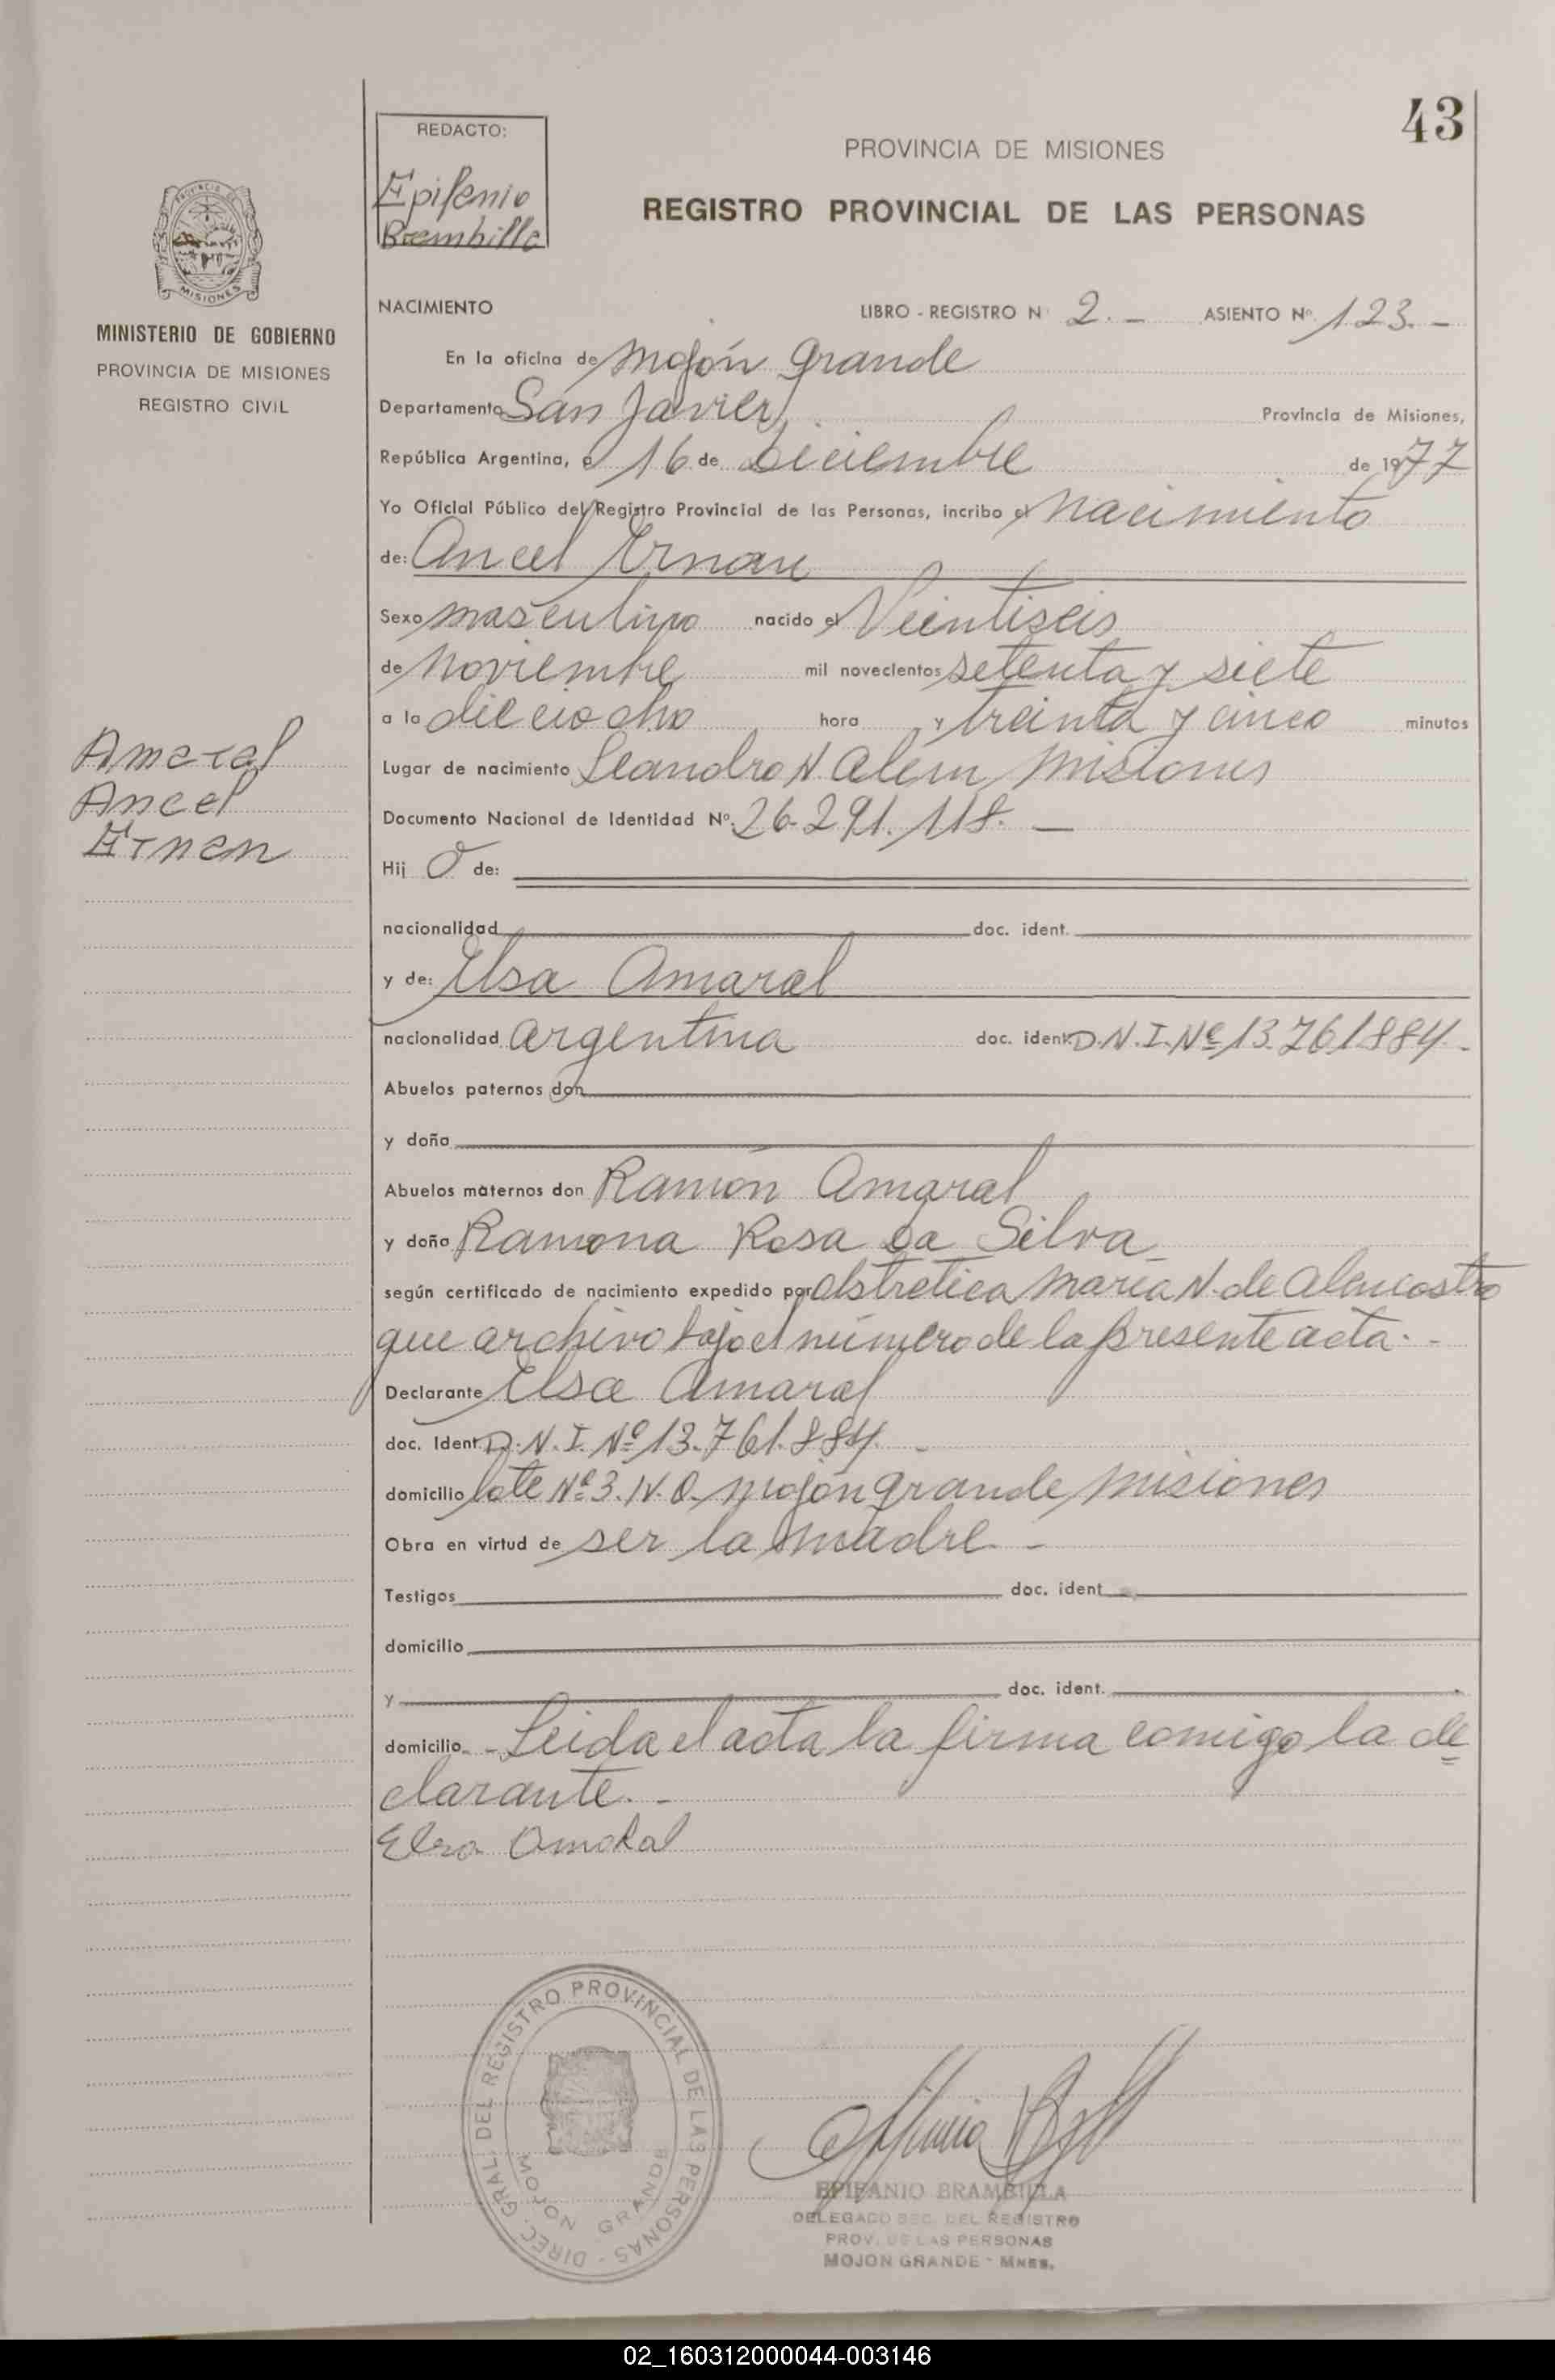 43
REDACTO:
Epifanio
Brambilla
PROVINCIA DE MISIONES
REGISTRO PROVINCIAL DE LAS PERSONAS
PROVINCIA DE
MISIONES
MINISTERIO DE GOBIERNO
PROVINCIA DE MISIONES
REGISTRO CIVIL
NACIMIENTO LIBRO - REGISTRO N 2.- ASIENTO Nº 123.-
En la oficina de Mojón Grande
Departamento San Javier Provincia de Misiones,
República Argentina, a 16 de Diciembre de 1977
Yo Oficial Público del Registro Provincial de las Personas, incribo el Nacimiento
de: Ancel Ernan
Sexo masculino nacido el Veintiseis
de Noviembre mil novecientos setenta y siete
a la dieciocho hora y treinta y cinco minutos
Amaral
Ancel
Ernan
Lugar de nacimiento Leandro N. Alem, Misiones
Documento Nacional de Identidad Nº 26.291.118.-
Hij o de:
nacionalidad doc. ident.
y de: Elsa Amaral
nacionalidad argentina doc. ident. D.N.I. Nº 13.761884.-
Abuelos paternos don
y doña
Abuelos maternos don Ramón Amaral
y doña Ramona Rosa Da Silva
según certificado de nacimiento expedido por obstretica María N. de Alencastro
que archivo bajo el número de la presente acta.-
Declarante Elsa Amaral
doc. Ident. D.N.I. Nº 13.761.884.-
domicilio lote Nº 3. N.O. Mojón grande, Misiones
Obra en virtud de ser la madre.-
Testigos doc. ident
domicilio
y doc. ident.
domicilio.- Leida el acta la firma comigo la de
clarante.-
Elsa Amaral
DIREC. GRAL. DEL REGISTRO PROVINCIAL DE LAS PERSONAS -
MOJON GRANDE
EPIFANIO BRAMBILLA
DELEGADO SEC. DEL REGISTRO
PROV. DE LAS PERSONAS
MOJON GRANDE - MNES.
02_160312000044-003146